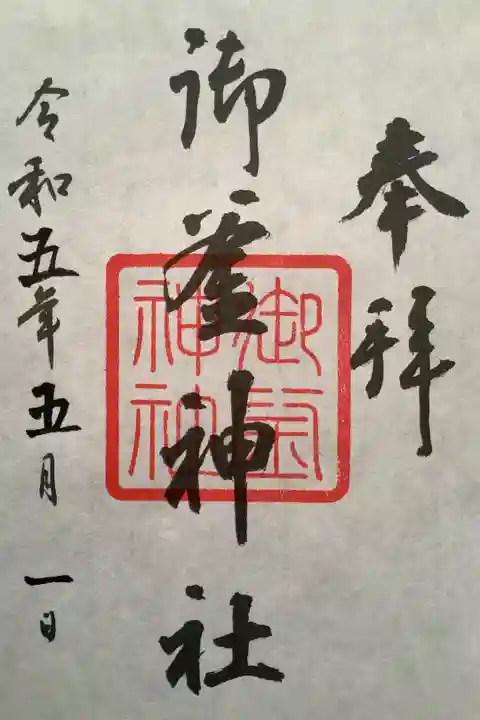 奉拝
御釜神社
御釜
神社
令和五年五月一日